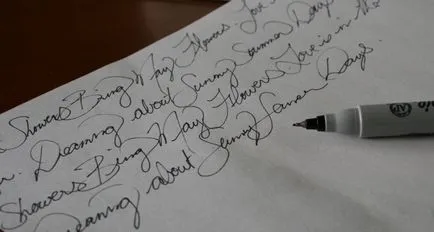 Showers Bring May Flowers. Love
Dreaming about Sunny Summer Days.
Showers Bring May Flowers Love is in the
Dreaming about Sunny Summer Days.
AP